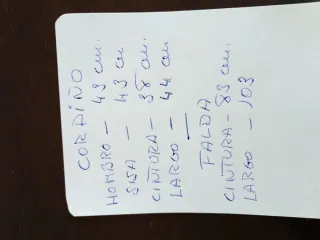 CORPIÑO
HOMBRO - 43 cm.
SISA - 43 cm
CINTURA - 38 cm.
LARGO - 44 cm
FALDA
CINTURA - 83 cm.
LARGO - 103